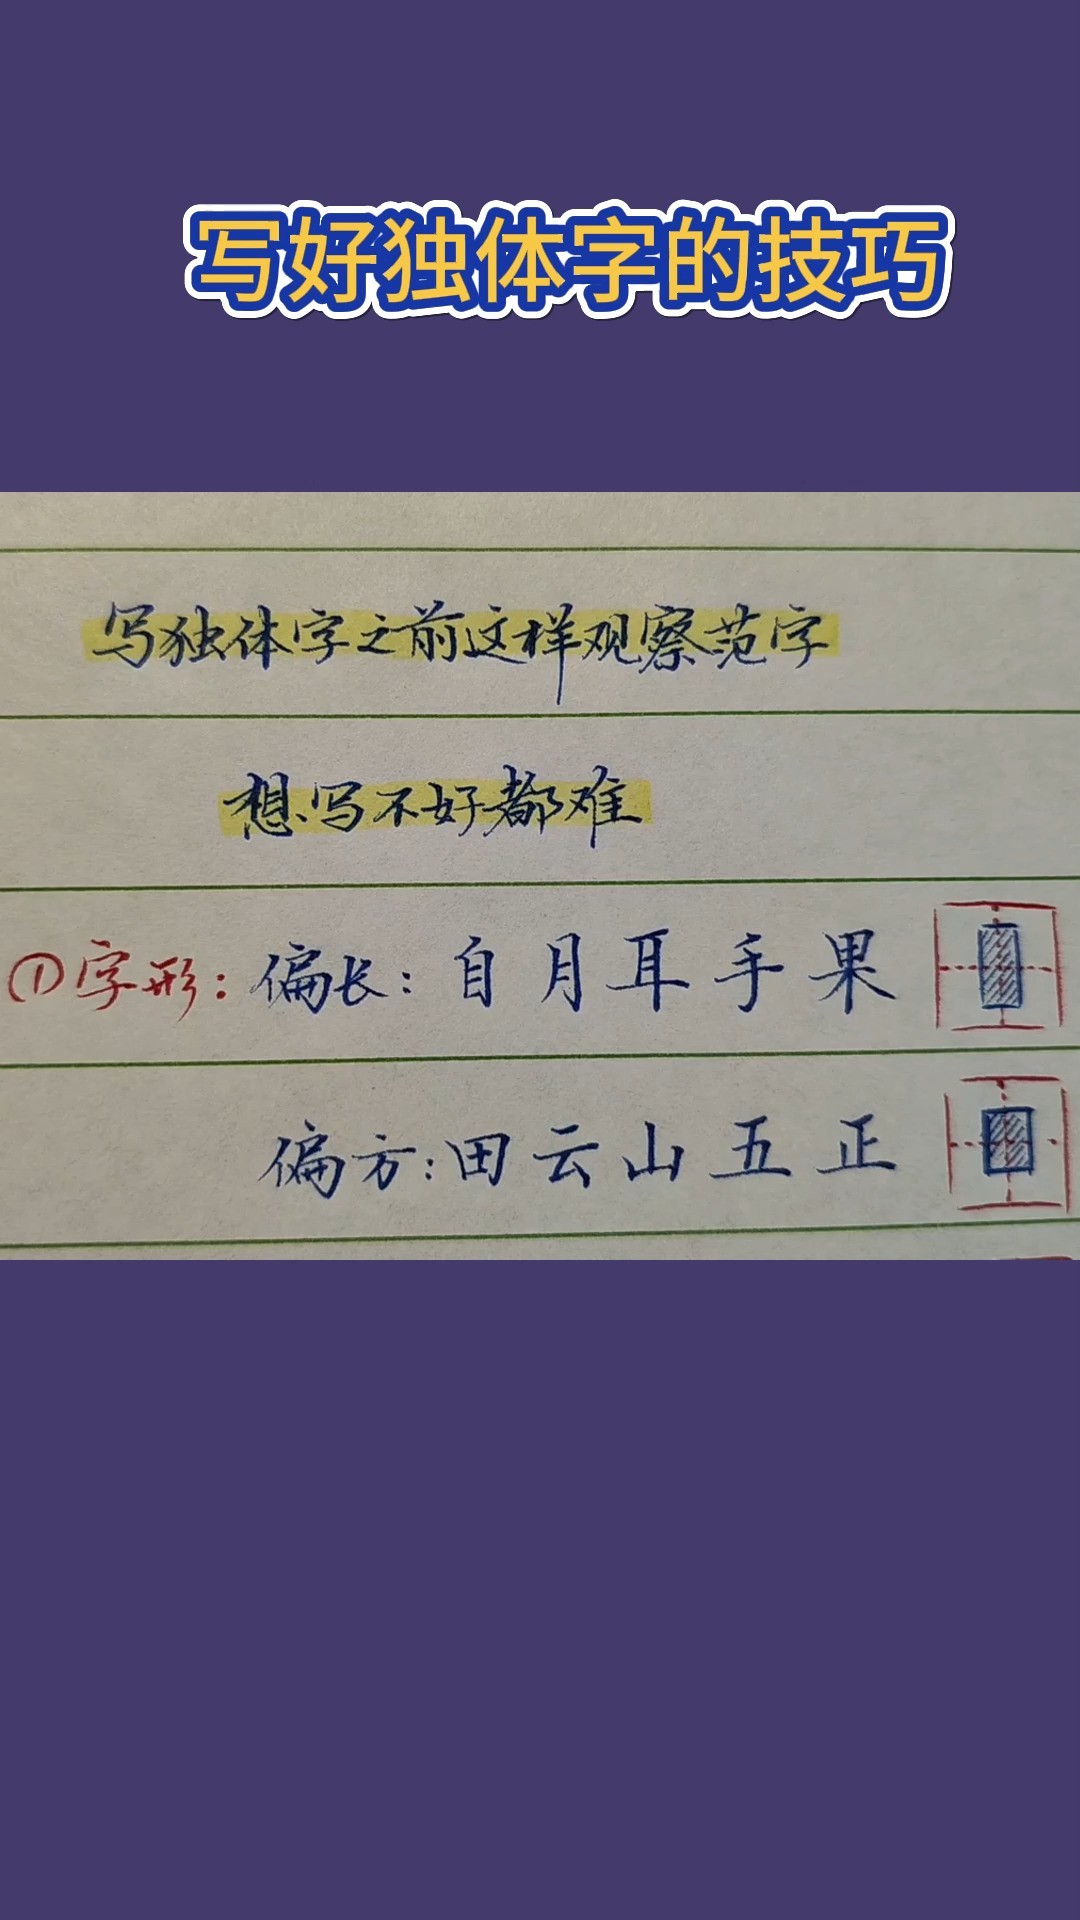 写好独体字的技巧
写独体字之前这样观察范字
想写不好都难
①字形：偏长：自月耳手果
偏方：田云山五正